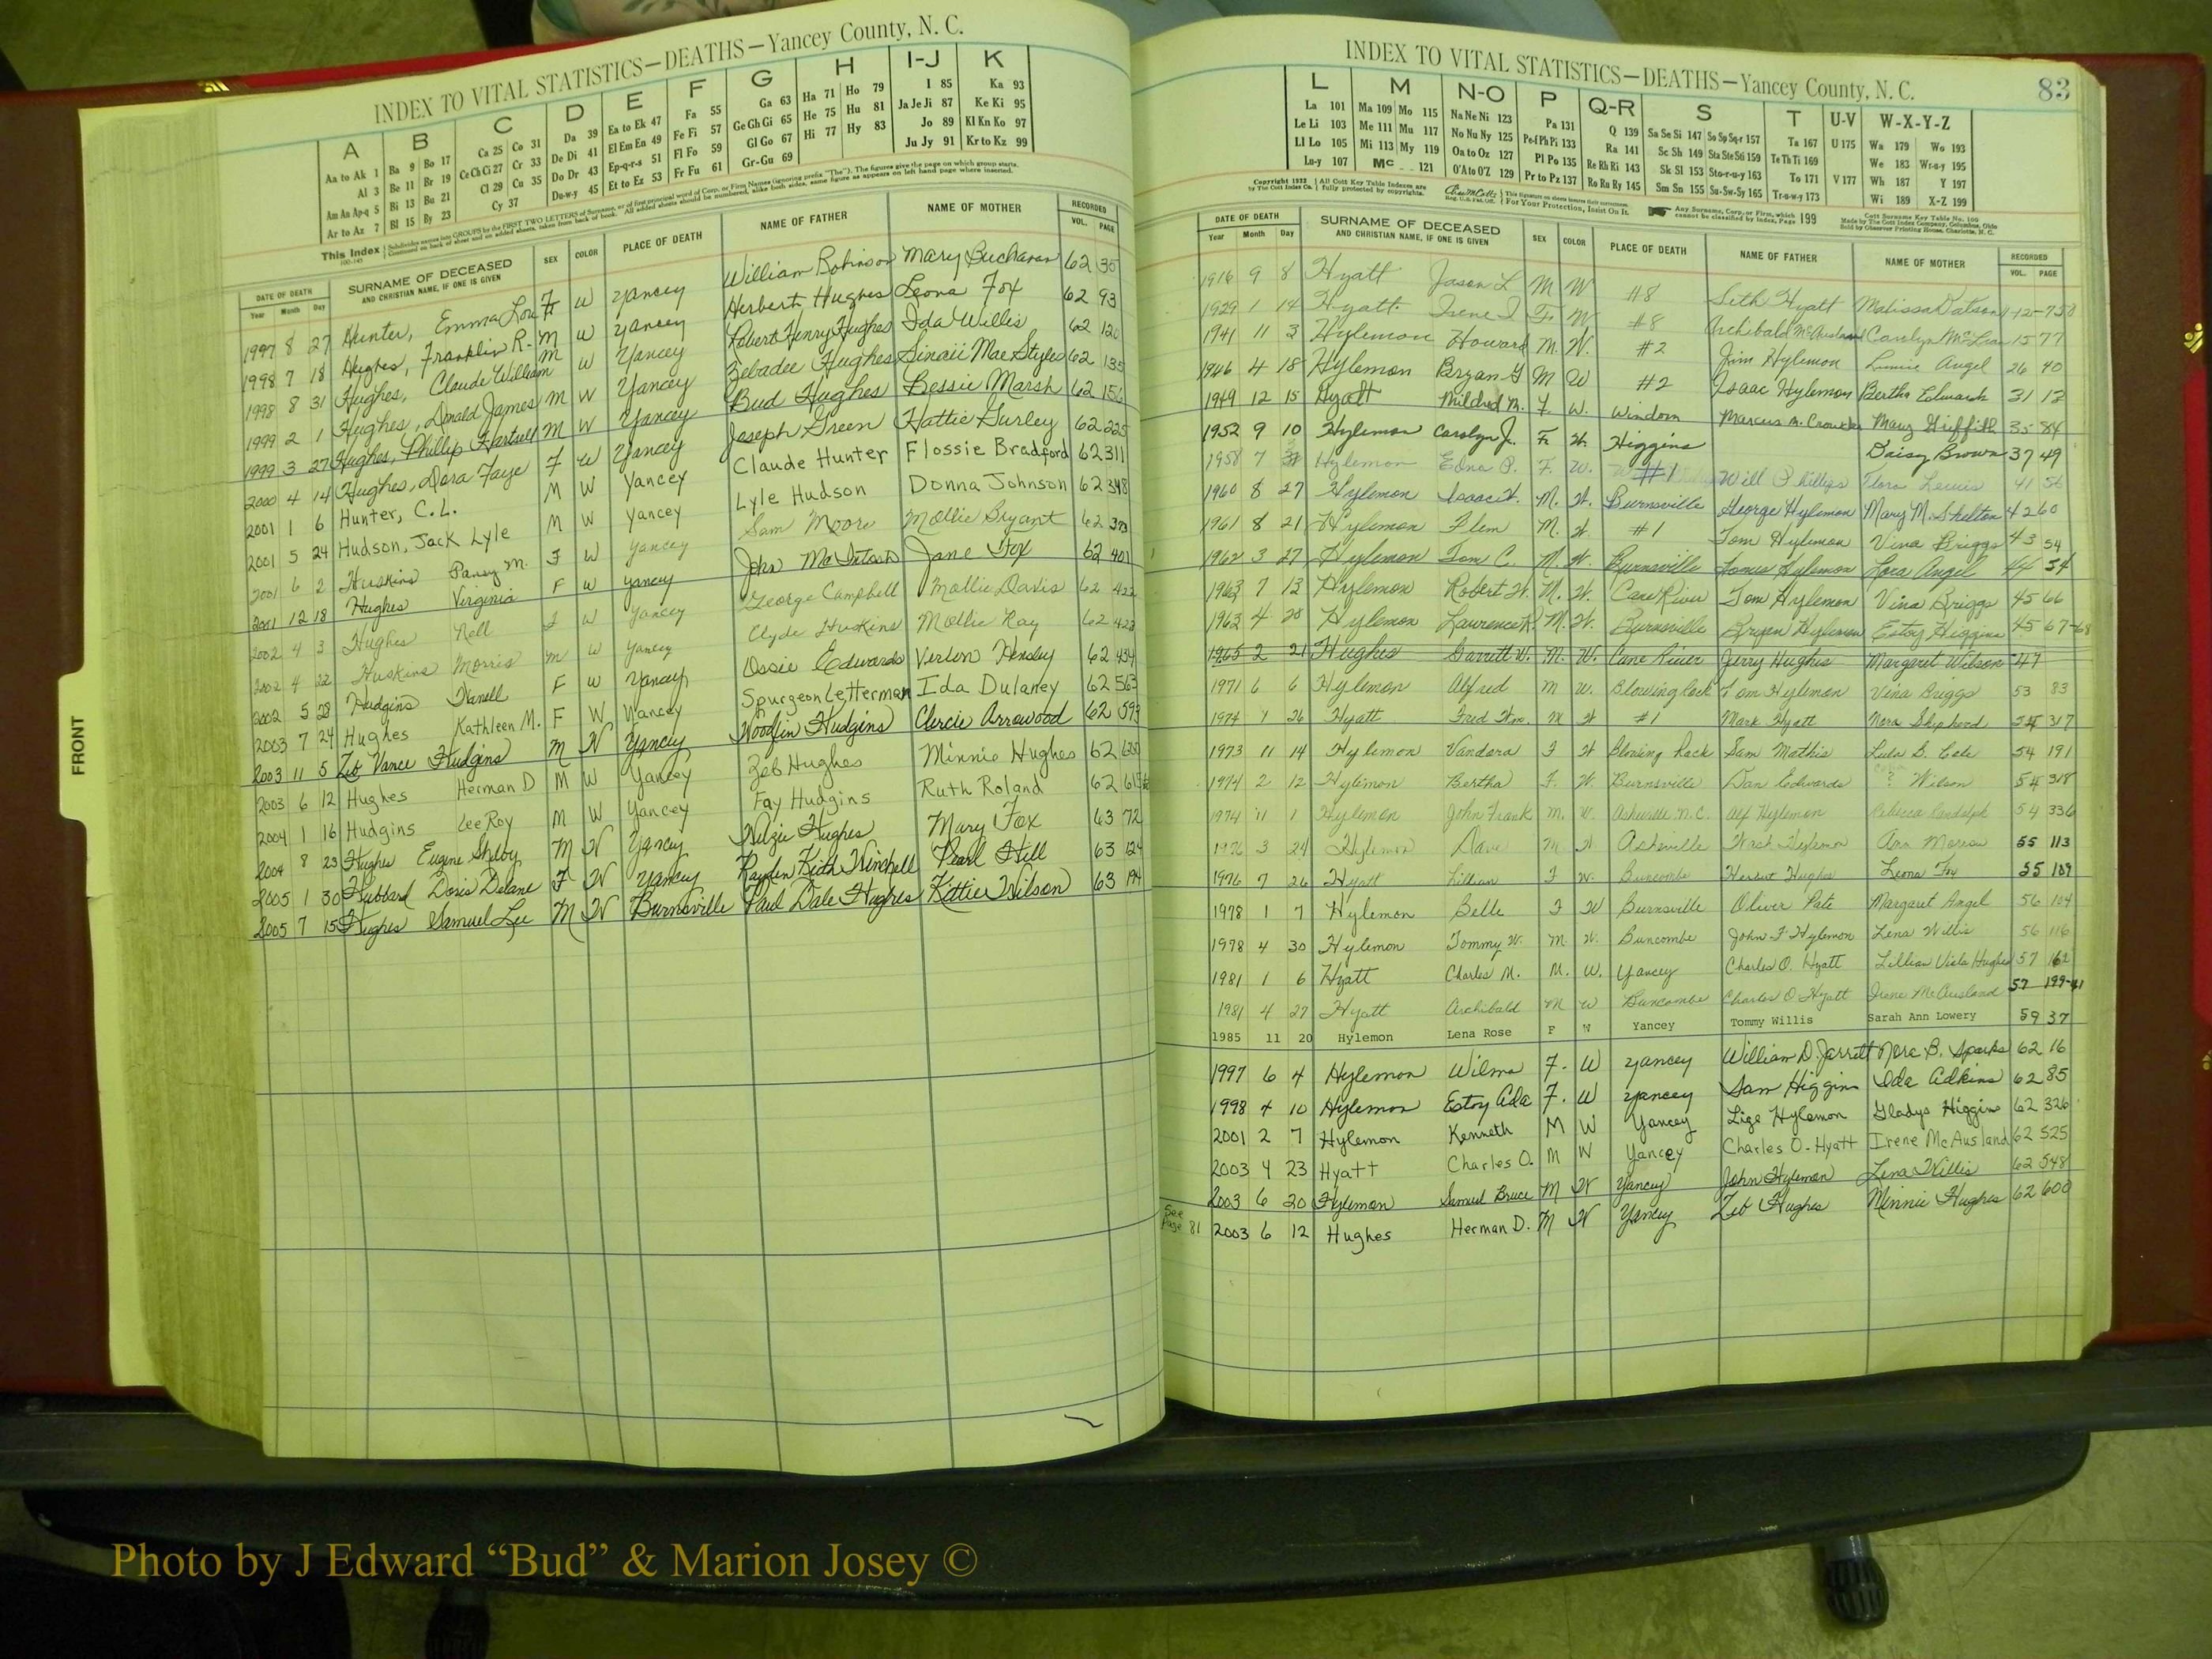 INDEX TO VITAL STATISTICS—DEATHS—Yancey County, N. C.
A B C D E F G H I-J K
Aa to Ak 1 Ba 9 Bo 17 Ca 25 Co 31 Da 39 Ea to Ek 47 Fa 55 Ga 63 Ha 71 Ho 79 I 85 Ka 93
Al 3 Be 11 Br 19 Ce Ch Ci 27 Cr 33 De Di 41 El Em En 49 Fe Fi 57 Ge Gh Gi 65 He 75 Hu 81 Ja Je Ji 87 Ke Ki 95
Am An Ap-q 5 Bi 13 Bu 21 Cl 29 Cu 35 Do Dr 43 Ep-q-r-s 51 Fl Fo 59 Gl Go 67 Hi 77 Hy 83 Jo 89 Kl Kn Ko 97
Ar to Az 7 Bl 15 By 23 Cy 37 Du-w-y 45 Et to Ez 53 Fr Fu 61 Gr-Gu 69 Ju Jy 91 Kr to Kz 99
This Index
DATE OF DEATH SURNAME OF DECEASED SEX COLOR PLACE OF DEATH NAME OF FATHER NAME OF MOTHER RECORDED
Year Month Day AND CHRISTIAN NAME, IF ONE IS GIVEN VOL. PAGE
1997 8 27 Hunter, Emma Lou F W Yancey William Robinson Mary Buchanan 62 35
1998 7 18 Hughes, Franklin R. M W Yancey Herbert Hughes Leona Fox 62 93
1998 8 31 Hughes, Claude William M W Yancey Robert Henry Hughes Ida Willis 62 120
1999 2 1 Hughes, Donald James M W Yancey Zebadee Hughes Sinaii Mae Styles 62 135
1999 3 27 Hughes, Phillip Hartsell M W Yancey Bud Hughes Bessie Marsh 62 156
2000 4 14 Hughes, Dora Faye F W Yancey Joseph Green Hattie Gurley 62 225
2001 1 6 Hunter, C.L. M W Yancey Claude Hunter Flossie Bradford 62 311
2001 5 24 Hudson, Jack Lyle M W Yancey Lyle Hudson Donna Johnson 62 348
2001 6 2 Huskins Pansy M. F W Yancey Sam Moore Mollie Bryant 62 373
2001 12 18 Hughes Virginia F W Yancey John McIntosh Jane Fox 62 401
2002 4 3 Hughes Nell F W Yancey George Campbell Mollie Davis 62 422
2002 4 22 Huskins Morris M W Yancey Clyde Huskins Mollie Ray 62 423
2002 5 28 Hudgins F W Yancey Ossie Edwards Verlon Hensley 62 434
2003 7 24 Hughes Kathleen M. F W Yancey Spurgeon Letterman Ida Dulaney 62 563
2003 11 5 Zeb Vance Hudgins M W Yancey Woodfin Hudgins Clercie Arrowood 62 593
2003 6 12 Hughes Herman D M W Yancey Zeb Hughes Minnie Hughes 62 600
2004 1 16 Hudgins Lee Roy M W Yancey Fay Hudgins Ruth Roland 62 615
2004 8 23 Hughes Eugene Shelby M W Yancey Hughes Mary Fox 63 72
2005 1 30 Hubbard Doris Delane F W Yancey Keith Winchell Pearl Hill 63 124
2005 7 15 Hughes Samuel Lee M W Burnsville Paul Dale Hughes Kittie Wilson 63 194
FRONT
INDEX TO VITAL STATISTICS—DEATHS—Yancey County, N. C. 83
L M N-O P Q-R S T U-V W-X-Y-Z
La 101 Ma 109 Mo 115 Na Ne Ni 123 Pa 131 Q 139 Sa Se Si 147 So Sp Sq-r 157 Ta 167 U 175 Wa 179 Wo 193
Le Li 103 Me 111 Mu 117 No Nu Ny 125 Pe-f Ph Pi 133 Ra 141 Sc Sh 149 Sta Ste Sti 159 Te Th Ti 169 We 183 Wr-o-y 195
Ll Lo 105 Mi 113 My 119 Oa to Oz 127 Pl Po 135 Re Rh Ri 143 Sk Sl 153 Sto-r-u-y 163 To 171 V 177 Wh 187 Y 197
Lu-y 107 Mc 121 O'A to O'Z 129 Pr to Pz 137 Ro Ru Ry 145 Sm Sn 155 Su-Sw-Sy 165 Tr-u-w-y 173 Wi 189 X-Z 199
DATE OF DEATH SURNAME OF DECEASED SEX COLOR PLACE OF DEATH NAME OF FATHER NAME OF MOTHER RECORDED
Year Month Day AND CHRISTIAN NAME, IF ONE IS GIVEN VOL. PAGE
1916 9 8 Hyatt Jason L M W #8 Seth Hyatt Malissa Watson 12-758
1929 1 14 Hyatt Irene I F W #8 Archibald McAusland Carolyn McLean 15 77
1941 11 3 Hylemon Howard M. W. #2 Jim Hylemon Angel 26 40
1946 4 18 Hylemon Bryan G M W #2 Isaac Hylemon Bertha Edwards 31 13
1949 12 15 Hyatt Mildred M. F. W. Windom Marcus M. Mary Griffith 35 84
1952 9 10 Hylemon Carolyn J. F. W. Higgins Daisy Brown 37 49
1958 7 Hylemon Edna P. F. W. #1 Will Phillips Flora Lewis 41 56
1960 8 27 Hylemon Isaac H. M. W. Burnsville George Hylemon Mary M. Shelton 42 60
1961 8 21 Hylemon Flem M. W. #1 Tom Hylemon Vina Briggs 43 54
1962 3 27 Hylemon Tom C. M. W. Burnsville Hylemon Lora Angel 44 54
1963 7 13 Hylemon Robert W. M. W. Cane River Tom Hylemon Vina Briggs 45 66
1963 4 28 Hylemon Lawrence R. M. W. Burnsville Bryan Hylemon Estoy Higgins 45 67-68
1965 2 21 Hughes Garrett W. M. W. Cane River Jerry Hughes Margaret Wilson 47
1971 6 6 Hylemon Alfred M W. Blowing Rock Tom Hylemon Vina Briggs 53 83
1974 1 26 Hyatt Fred M W #1 Mark Hyatt Nora Shepherd 54 317
1973 11 14 Hylemon Vandora F W Blowing Rock Sam Mathis Lula B. Cole 54 191
1974 2 12 Hylemon Bertha F. W. Burnsville Dan Edwards ? Wilson 54 318
1974 11 1 Hylemon John Frank M. W. Asheville N.C. Alf Hylemon Rebecca Randolph 54 336
1976 3 24 Hylemon Dave M W Asheville Hylemon Ann Morrow 55 113
1976 7 26 Hyatt Lillian F W. Buncombe Hughes Leona Fox 55 109
1978 1 7 Hylemon Belle F W Burnsville Oliver Pate Margaret Angel 56 104
1978 4 30 Hylemon Tommy W. M. W. Buncombe John F Hylemon Lena Willis 56 116
1981 1 6 Hyatt Charles M. M. W. Yancey Charles O. Hyatt Lillian Viola Hughes 57 162
1981 4 27 Hyatt Archibald M W Buncombe Charles O Hyatt Irene McAusland 57 199-41
1985 11 20 Hylemon Lena Rose F W Yancey Tommy Willis Sarah Ann Lowery 59 37
1997 6 4 Hylemon Wilma F. W Yancey William D. Jarrett Nora B. Sparks 62 16
1998 4 10 Hylemon Estoy Ada F. W Yancey Sam Higgins Ida Adkins 62 85
2001 2 7 Hylemon Kenneth M W Yancey Lige Hylemon Gladys Higgins 62 326
2003 4 23 Hyatt Charles O. M W Yancey Charles O. Hyatt Irene McAusland 62 525
2003 6 20 Hylemon Samuel Bruce M W Yancey John Hylemon Lena Willis 62 548
See Page 81 2003 6 12 Hughes Herman D. M W Yancey Zeb Hughes Minnie Hughes 62 600
Photo by J Edward “Bud” & Marion Josey ©